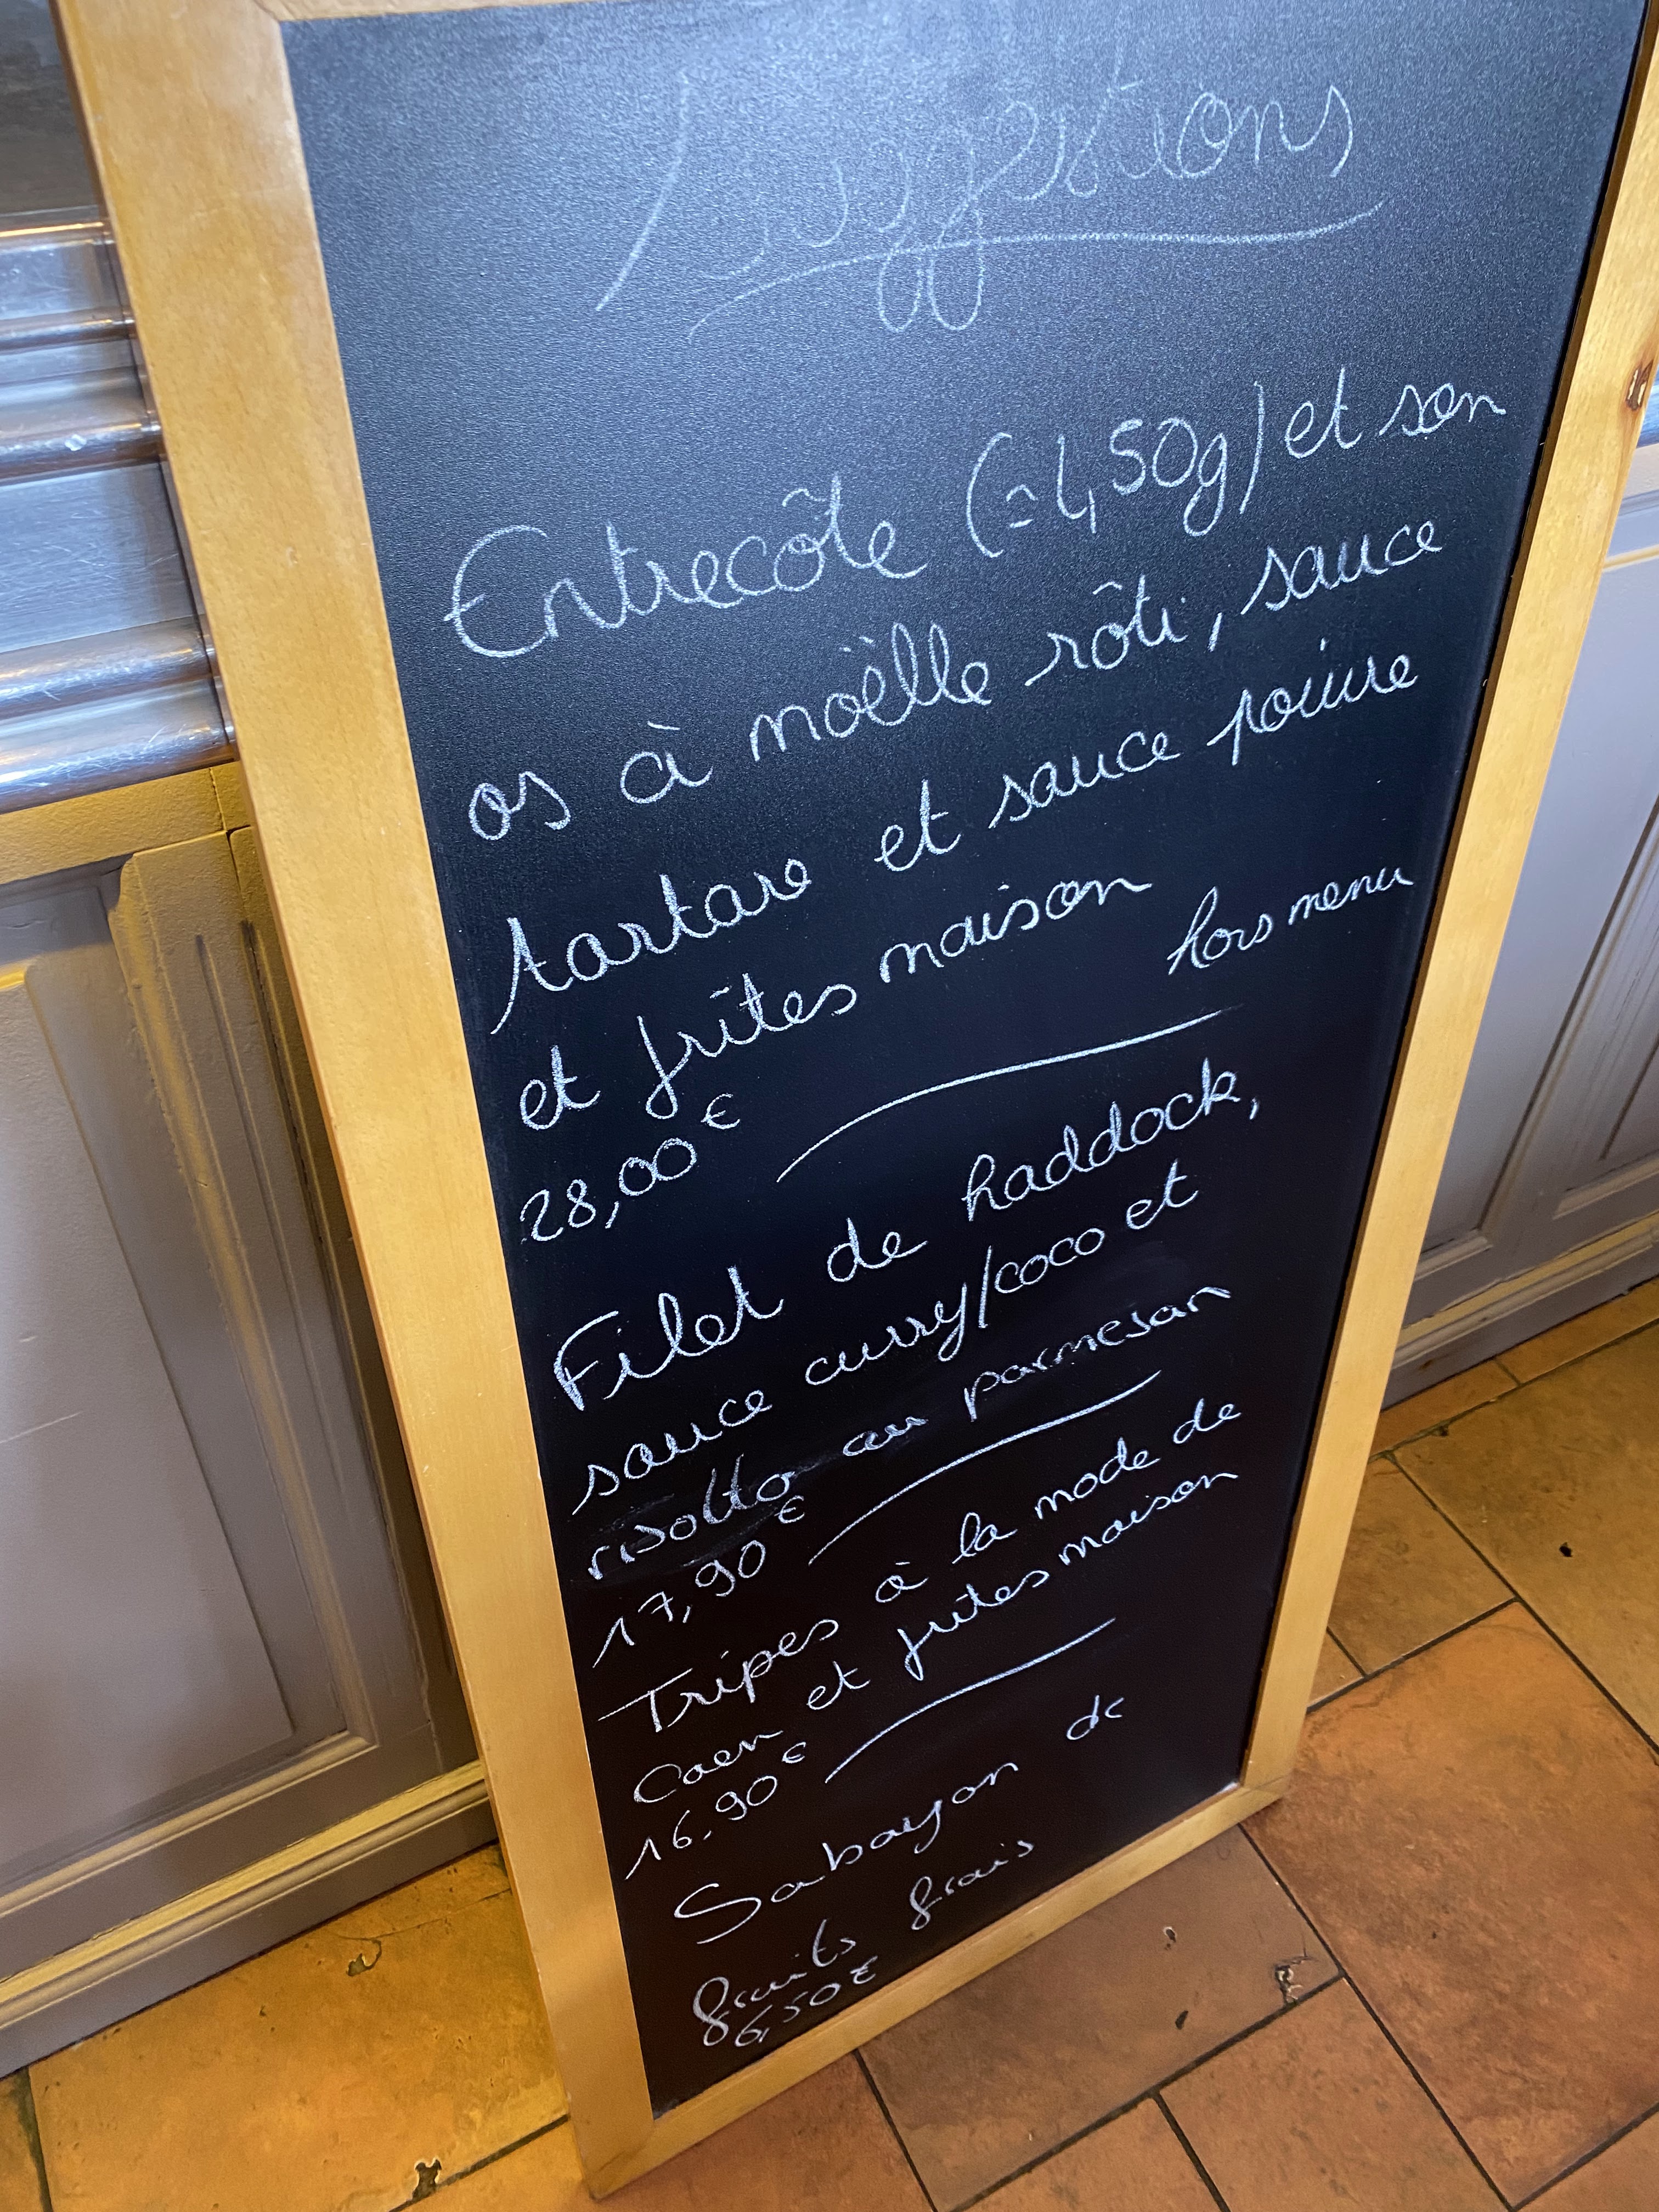 Suggestions
Entrecôte (≃450g) et son
os à moëlle rôti, sauce
tartare et sauce poivre
et frîtes maison
hors menu
28,00€
Filet de haddock,
sauce curry/coco et
risotto au parmesan
17,90€
Tripes à la mode de
Caen et frites maison
16.90€
Sabayon de
fruits frais
6,50€